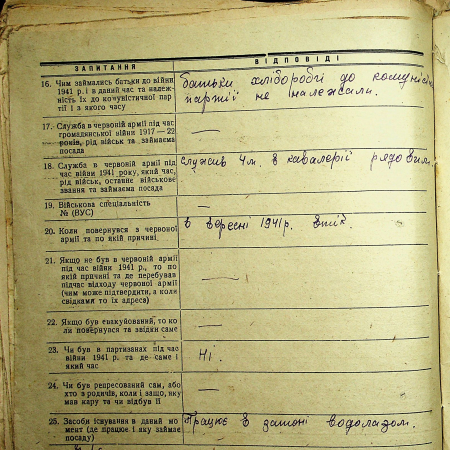 ЗАПИТАННЯ
ВІДПОВІДІ
16. Чим займались батьки до війни
1941 р. і в даний час та належ-
ність їх до комуністичної пар-
тії і з якого часу
батьки хлібороби до комуніс
партії не належали.
17. Служба в червоній армії під час
громадянської війни 1917—22
років, рід військ та займаєма
посада
—
18. Служба в червоній армії під
час війни 1941 року, який час,
рід військ, останнє військове
звання та займаєма посада
служив 4м. в кавалерії рядовим.
19. Військова спеціяльність
№ (ВУС)
—
20. Коли повернувся з червоної
армії та по якій причині
в вересні 1941р. втік
21. Якщо не був в червоній армії
під час війни 1941 р., то по
якій причині та де перебував
підчас відходу червоної армії
(чим може підтвердити, а коли
свідками то їх адреса)
—
22. Якщо був евакуйований, то ко-
ли повернувся та звідки саме
—
23. Чи був в партизанах під час
війни 1941 р. та де саме і
який час
Ні.
24. Чи був репресований сам, або
хто з родичів, коли і защо, яку
мав кару та чи відбув її
—
25. Засоби існування в даний мо-
мент (де працює і яку займає
посаду)
Працює в затоні водолазом.